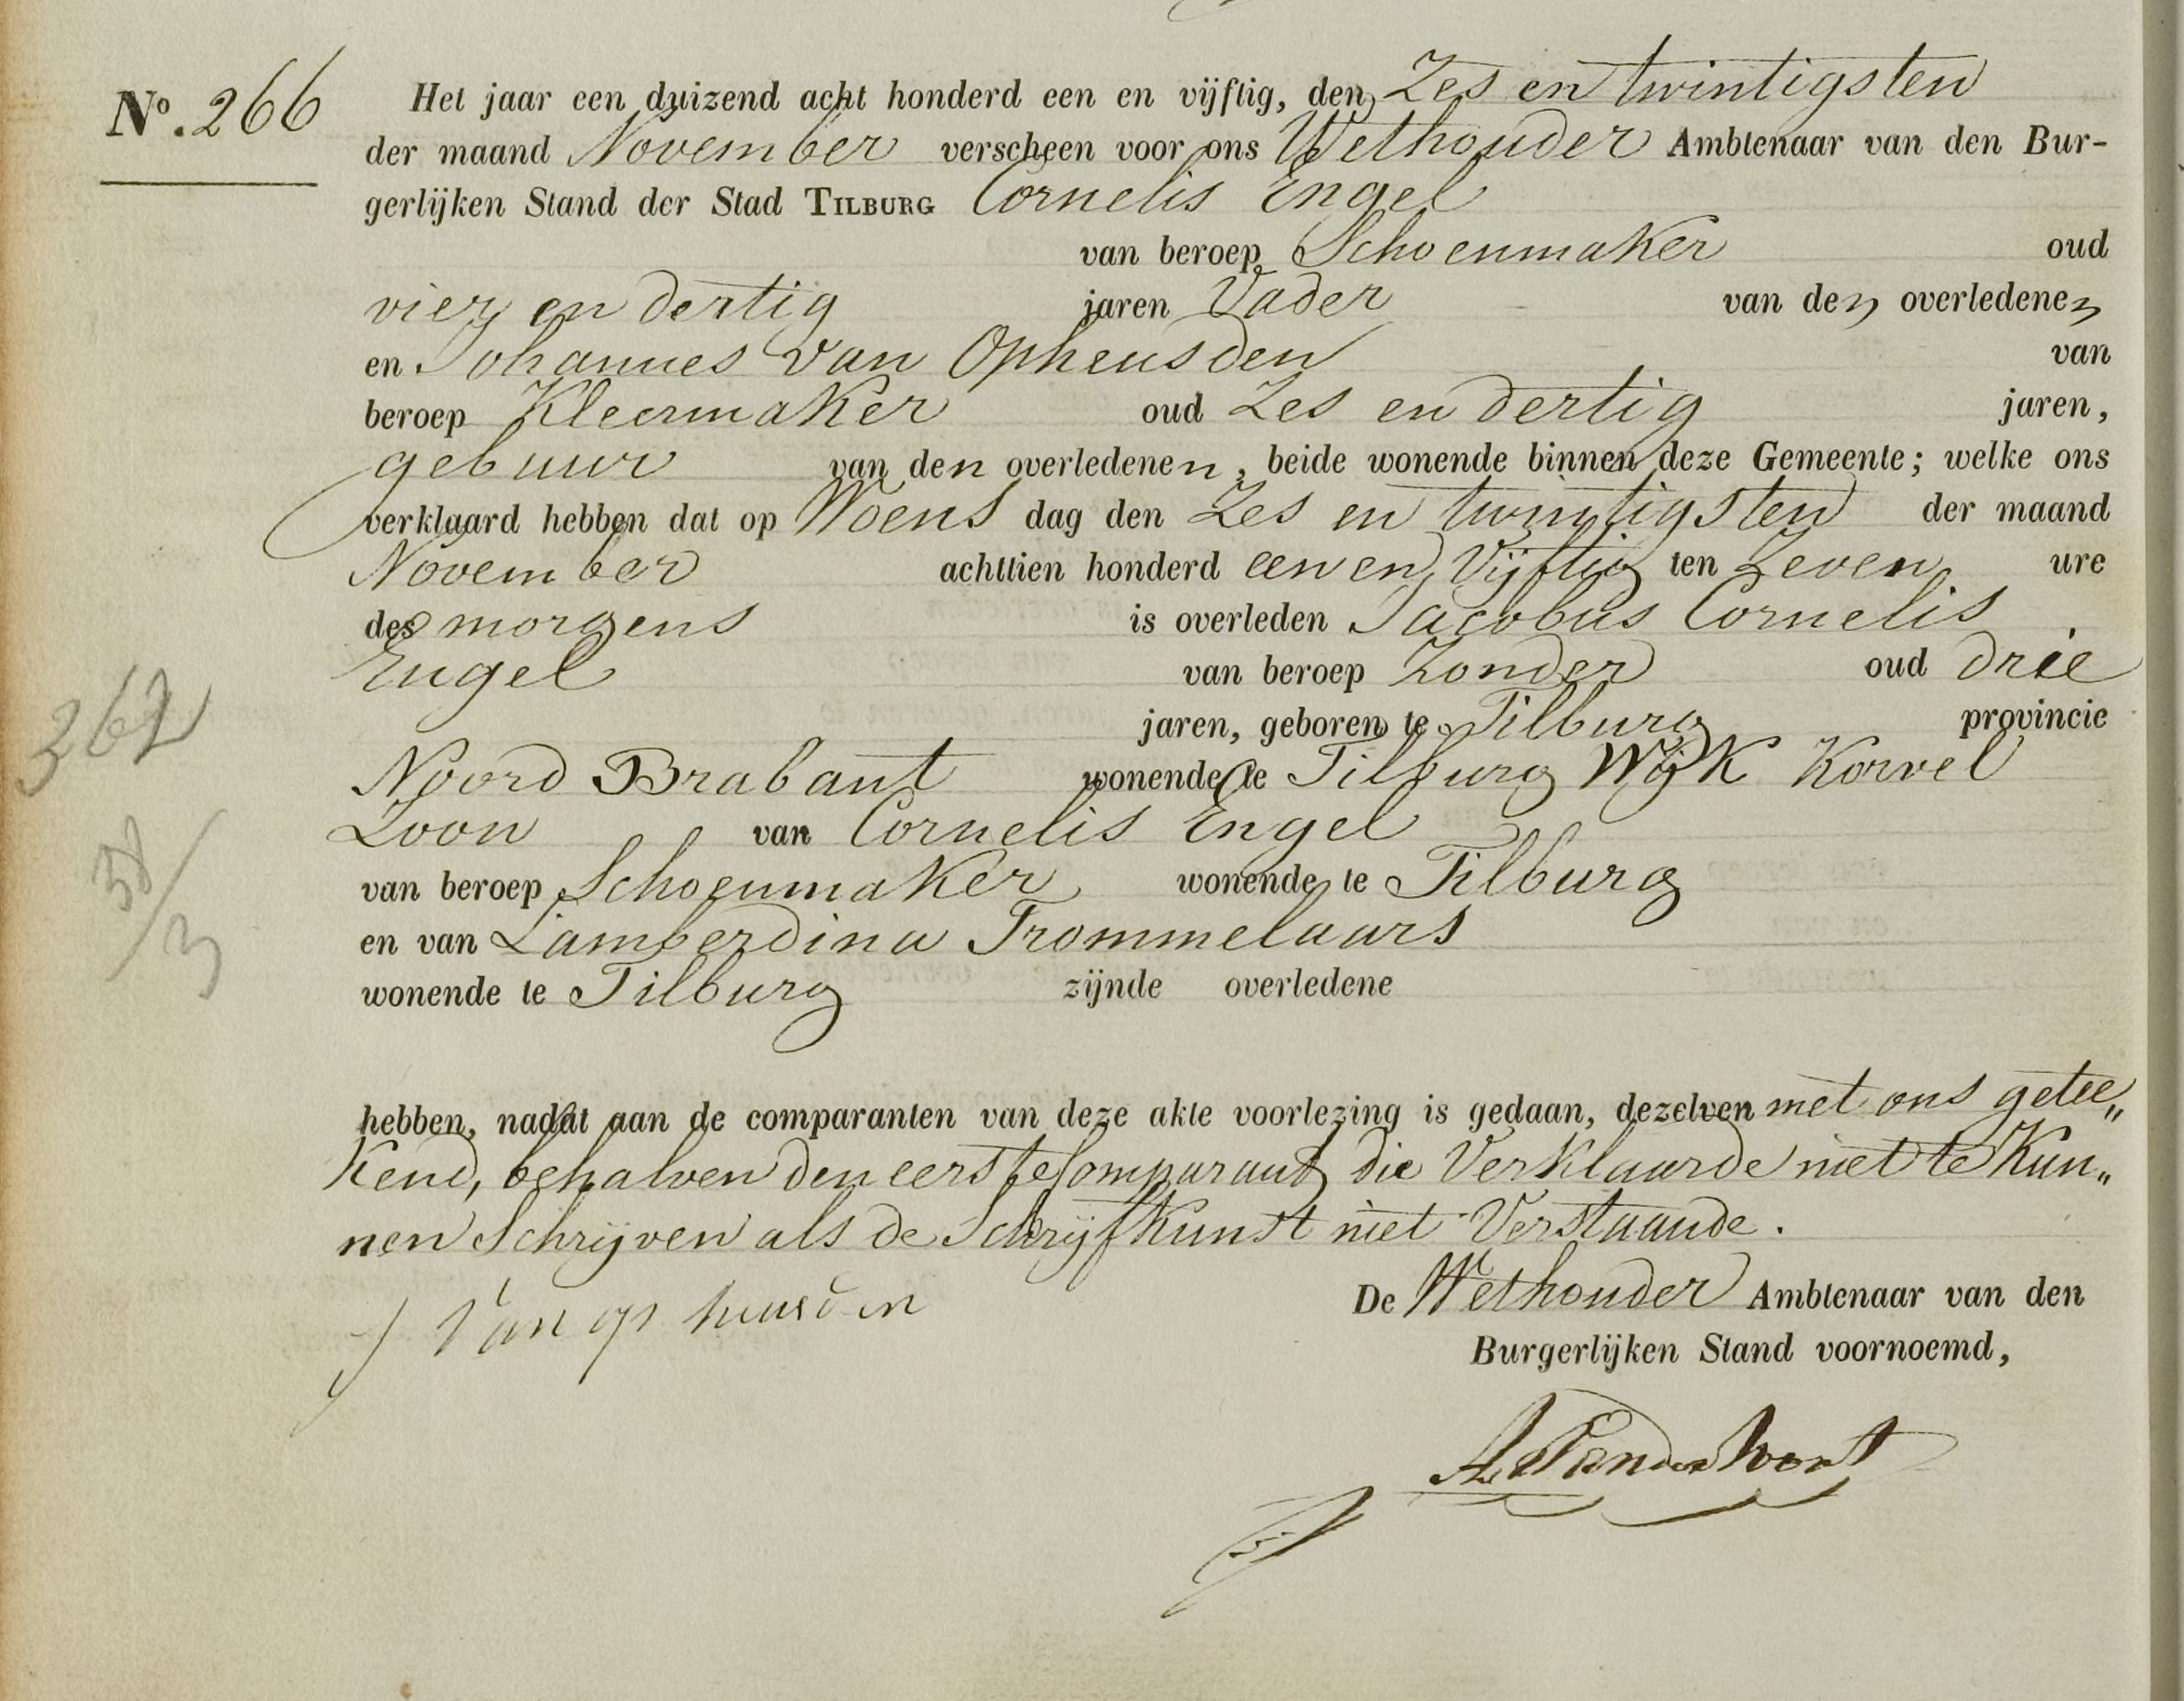 No. 266
Het jaar een duizend acht honderd een en vijftig, den Zes en twintigsten
der maand November verscheen voor ons Wethouder Ambtenaar van den Bur-
gerlijken Stand der Stad TILBURG Cornelis Engel
van beroep Schoenmaker oud
vier en dertig jaren Vader van den overledenen
en Johannes van Opheusden van
beroep Kleermaker oud Zes en dertig jaren,
gebuur van den overledenen, beide wonende binnen deze Gemeente; welke ons
verklaard hebben dat op Woens dag den Zes en twintigsten der maand
November achttien honderd een en Vijftig ten Zeven ure
des morgens is overleden Jacobus Cornelis
Engel van beroep Zonder oud drie
jaren, geboren te Tilburg provincie
Noord Brabant wonende te Tilburg Wijk Korvel
Zoon van Cornelis Engel
van beroep Schoenmaker wonende te Tilburg
en van Lamberdina Trommelaars
wonende te Tilburg zijnde overledene
hebben, nadat aan de comparanten van deze akte voorlezing is gedaan, dezelven met ons getee„
Kend, behalven den eerste Comparant die Verklaarde niet te Kun„
nen Schrijven als de Schrijfkunst niet Verstaande.
J Van op heusden
De Wethouder Ambtenaar van den
Burgerlijken Stand voornoemd,
362
58/3